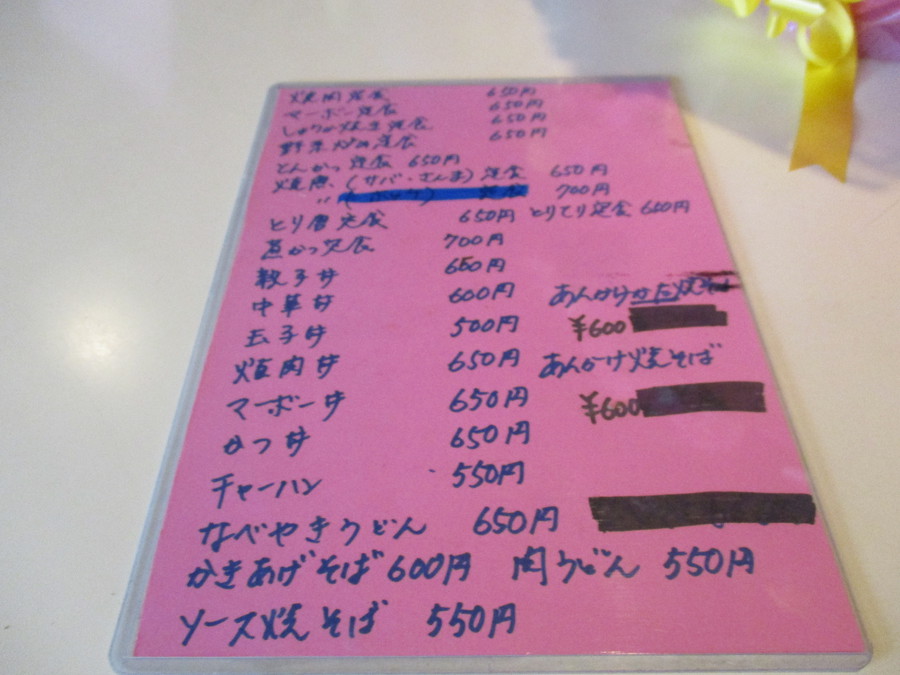 焼肉定食 650円
マーボー定食 650円
しょうが焼き定食 650円
野菜炒め定食 650円
とんかつ定食 650円
焼魚(サバ・さんま)定食 650円
〃 定食 700円
とり唐定食 650円 とりてり定食 650円
魚かつ定食 700円
親子丼 650円
中華丼 600円 あんかけかた焼そば
玉子丼 500円 ¥600
焼肉丼 650円 あんかけ焼そば
マーボー丼 650円 ¥600
かつ丼 650円
チャーハン 550円
なべやきうどん 650円
かきあげそば 600円 肉うどん 550円
ソース焼そば 550円